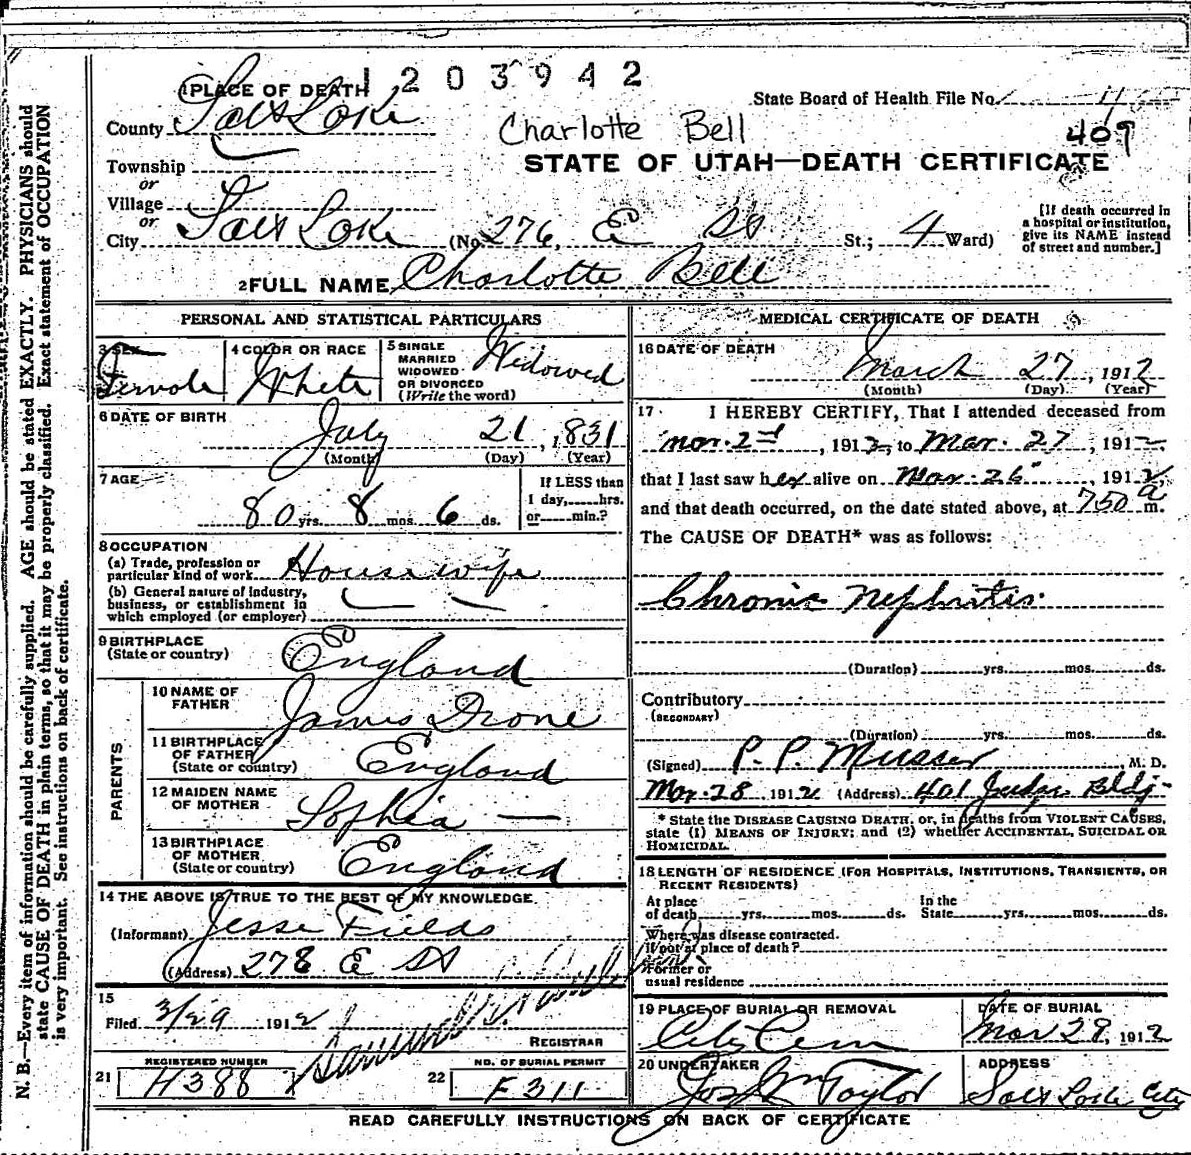 1203942
1 PLACE OF DEATH
State Board of Health File No. 11
County Salt Lake
Charlotte Bell
409
STATE OF UTAH—DEATH CERTIFICATE
Township
or
Village
or
City Salt Lake (No. 276, E St St.; 4 Ward)
[If death occurred in
a hospital or institution,
give its NAME instead
of street and number.]
2 FULL NAME Charlotte Bell
PERSONAL AND STATISTICAL PARTICULARS
3 SEX
Female
4 COLOR OR RACE
White
5 SINGLE
MARRIED
WIDOWED
OR DIVORCED
(Write the word)
Widowed
6 DATE OF BIRTH
July 21, 1831
(Month) (Day) (Year)
7 AGE
80 yrs. 8 mos. 6 ds.
If LESS than
1 day,......hrs.
or......min.?
8 OCCUPATION
(a) Trade, profession or
particular kind of work Housewife
(b) General nature of industry,
business, or establishment in
which employed (or employer)
9 BIRTHPLACE
(State or country)
England
PARENTS
10 NAME OF
FATHER
James Drone
11 BIRTHPLACE
OF FATHER
(State or country)
England
12 MAIDEN NAME
OF MOTHER
Sophia —
13 BIRTHPLACE
OF MOTHER
(State or country)
England
14 THE ABOVE IS TRUE TO THE BEST OF MY KNOWLEDGE.
(Informant) Jesse Fields
(Address) 278 E St
15
Filed 3/29 1912
REGISTRAR
REGISTERED NUMBER
21 H388
NO. OF BURIAL PERMIT
22 F311
MEDICAL CERTIFICATE OF DEATH
16 DATE OF DEATH
March 27, 1912
(Month) (Day) (Year)
17 I HEREBY CERTIFY, That I attended deceased from
nov. 2nd, 1912, to Mar. 27, 1912
that I last saw her alive on Mar. 26", 1912
and that death occurred, on the date stated above, at 750 a m.
The CAUSE OF DEATH* was as follows:
Chronic Nephritis.
(Duration) yrs. mos. ds.
Contributory
(SECONDARY)
(Duration) yrs. mos. ds.
(Signed) P. P. Musser M. D.
Mar. 28 1912 (Address) 401 Judge Bldg-
* State the DISEASE CAUSING DEATH, or, in deaths from VIOLENT CAUSES,
state (1) MEANS OF INJURY; and (2) whether ACCIDENTAL, SUICIDAL OR
HOMICIDAL.
18 LENGTH OF RESIDENCE (FOR HOSPITALS, INSTITUTIONS, TRANSIENTS, OR
RECENT RESIDENTS)
At place
of death yrs. mos. ds.
In the
State yrs. mos. ds.
Where was disease contracted.
If not at place of death?
Former or
usual residence
19 PLACE OF BURIAL OR REMOVAL
City Cem
DATE OF BURIAL
Mar 28, 1912
20 UNDERTAKER
Jos Wm Taylor
ADDRESS
Salt Lake City
READ CAREFULLY INSTRUCTIONS ON BACK OF CERTIFICATE
N. B.—Every item of information should be carefully supplied. AGE should be stated EXACTLY. PHYSICIANS should
state CAUSE OF DEATH in plain terms, so that it may be properly classified. Exact statement of OCCUPATION
is very important. See instructions on back of certificate.